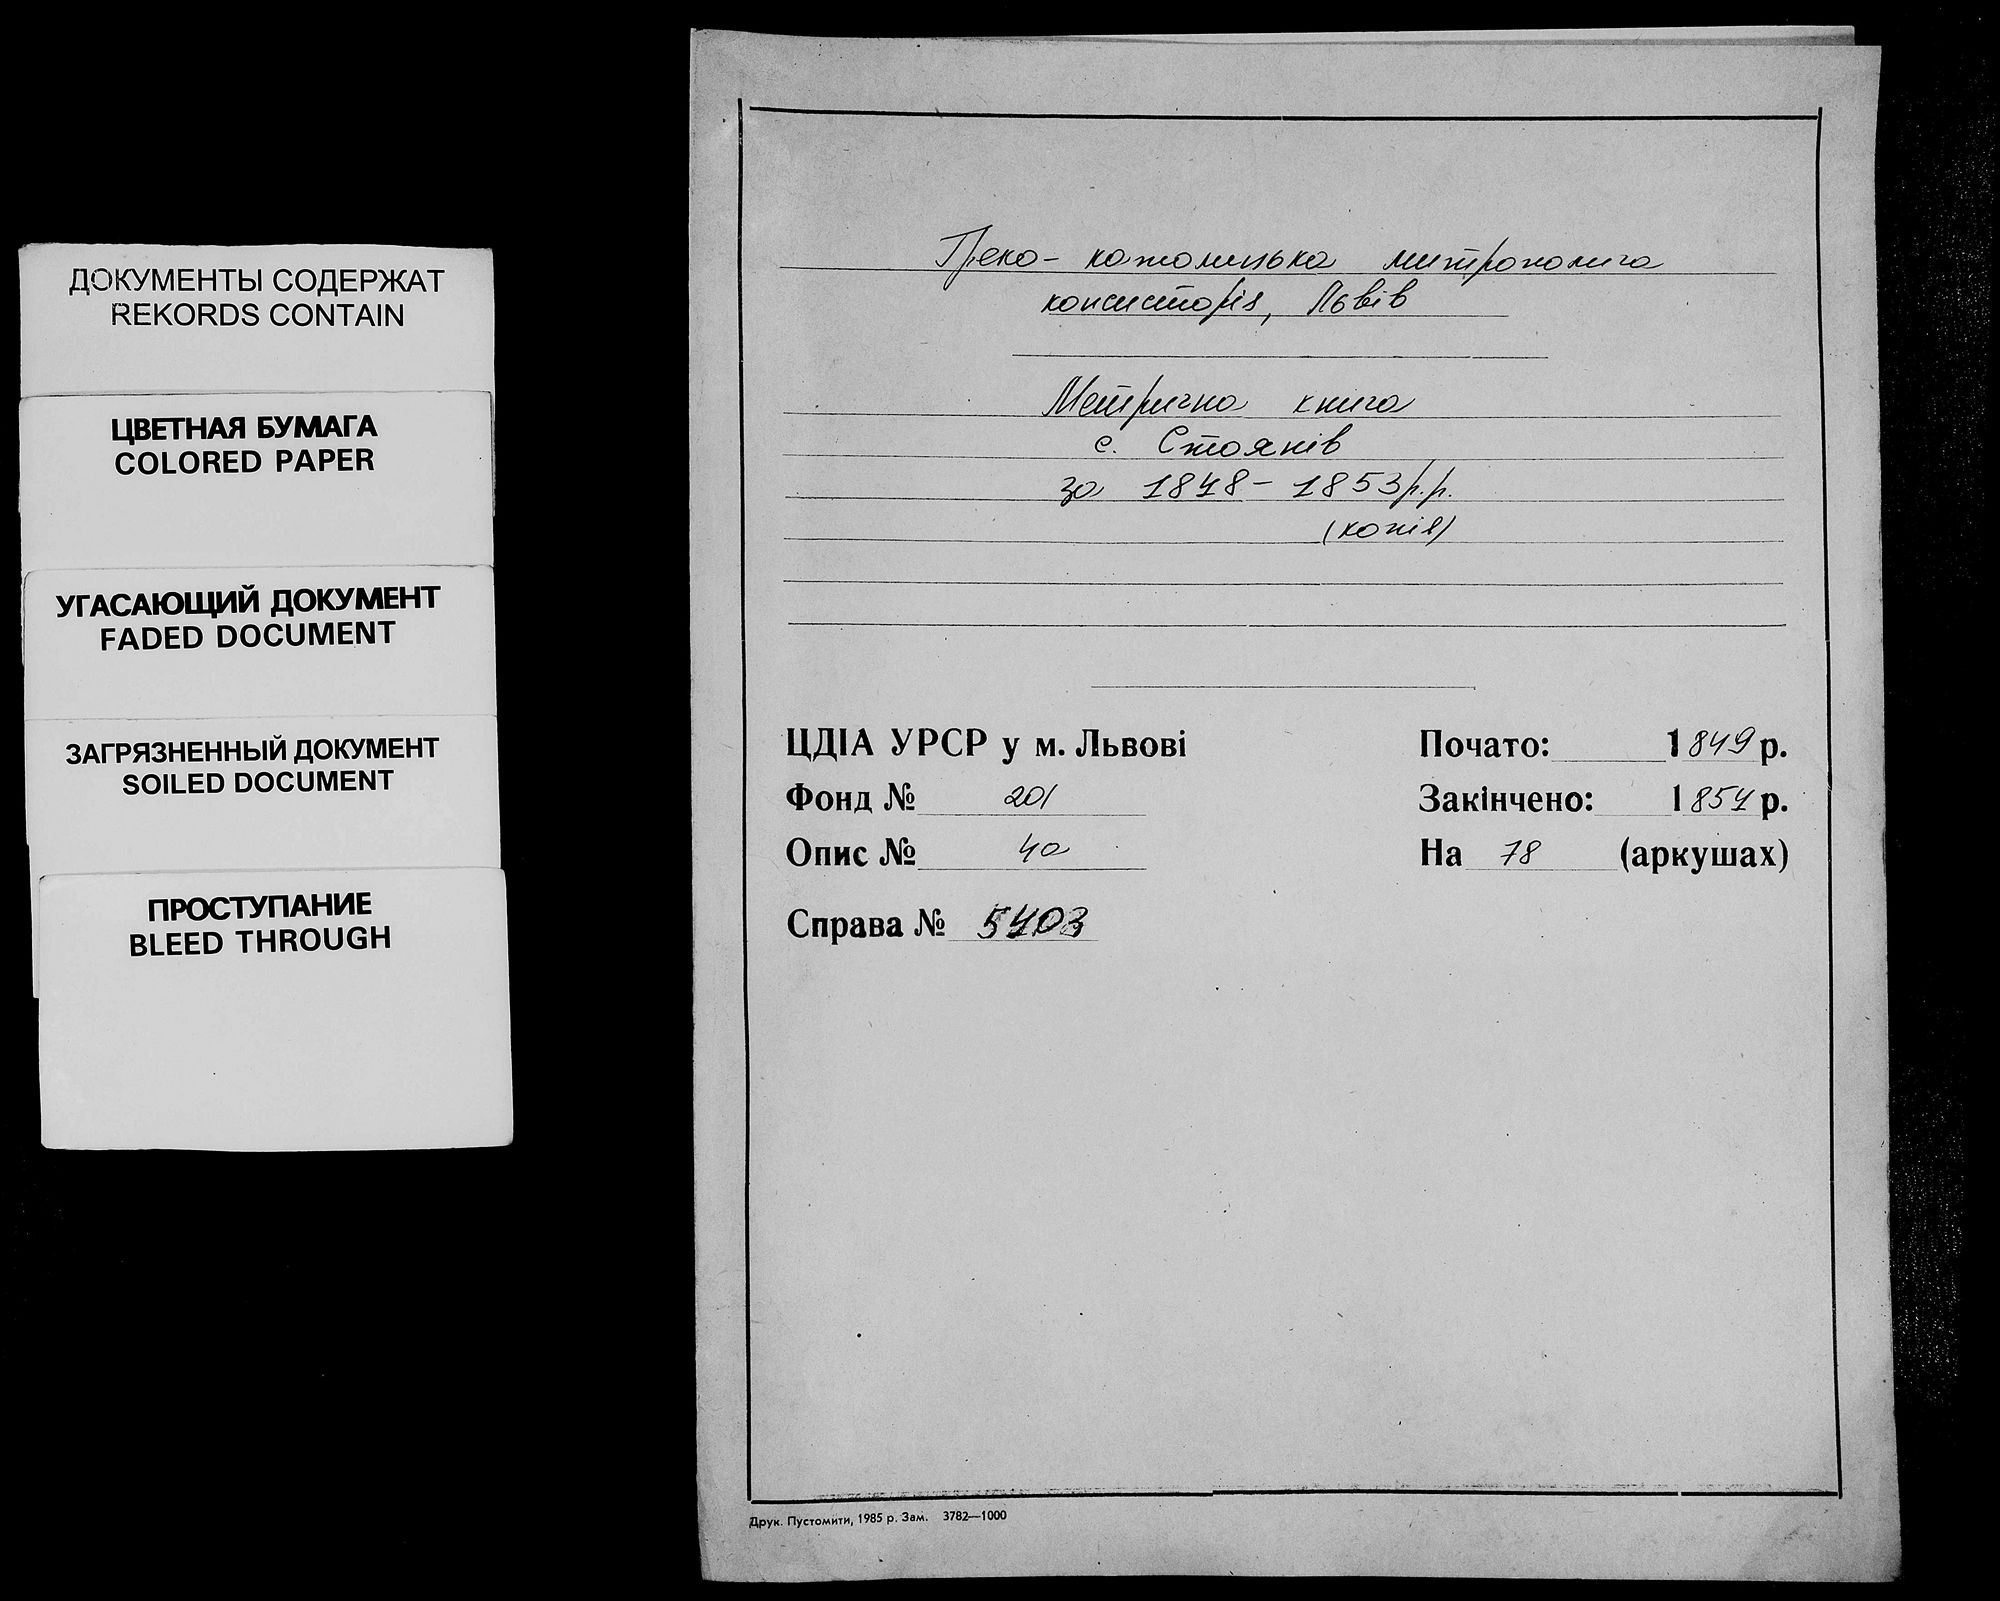 ДОКУМЕНТЫ СОДЕРЖАТ
REKORDS CONTAIN
ЦВЕТНАЯ БУМАГА
COLORED PAPER
УГАСАЮЩИЙ ДОКУМЕНТ
FADED DOCUMENT
ЗАГРЯЗНЕННЫЙ ДОКУМЕНТ
SOILED DOCUMENT
ПРОСТУПАНИЕ
BLEED THROUGH
Греко-католицька митрополича
консисторія, Львів
Метрична книга
с. Стоянів
за 1848-1853 р.р.
(копія)
ЦДІА УРСР у м. Львові
Фонд № 201
Опис № 4а
Справа № 5403
Почато: 1849 р.
Закінчено: 1854 р.
На 78 (аркушах)
Друк. Пустомити, 1985 р. Зам. 3782—1000